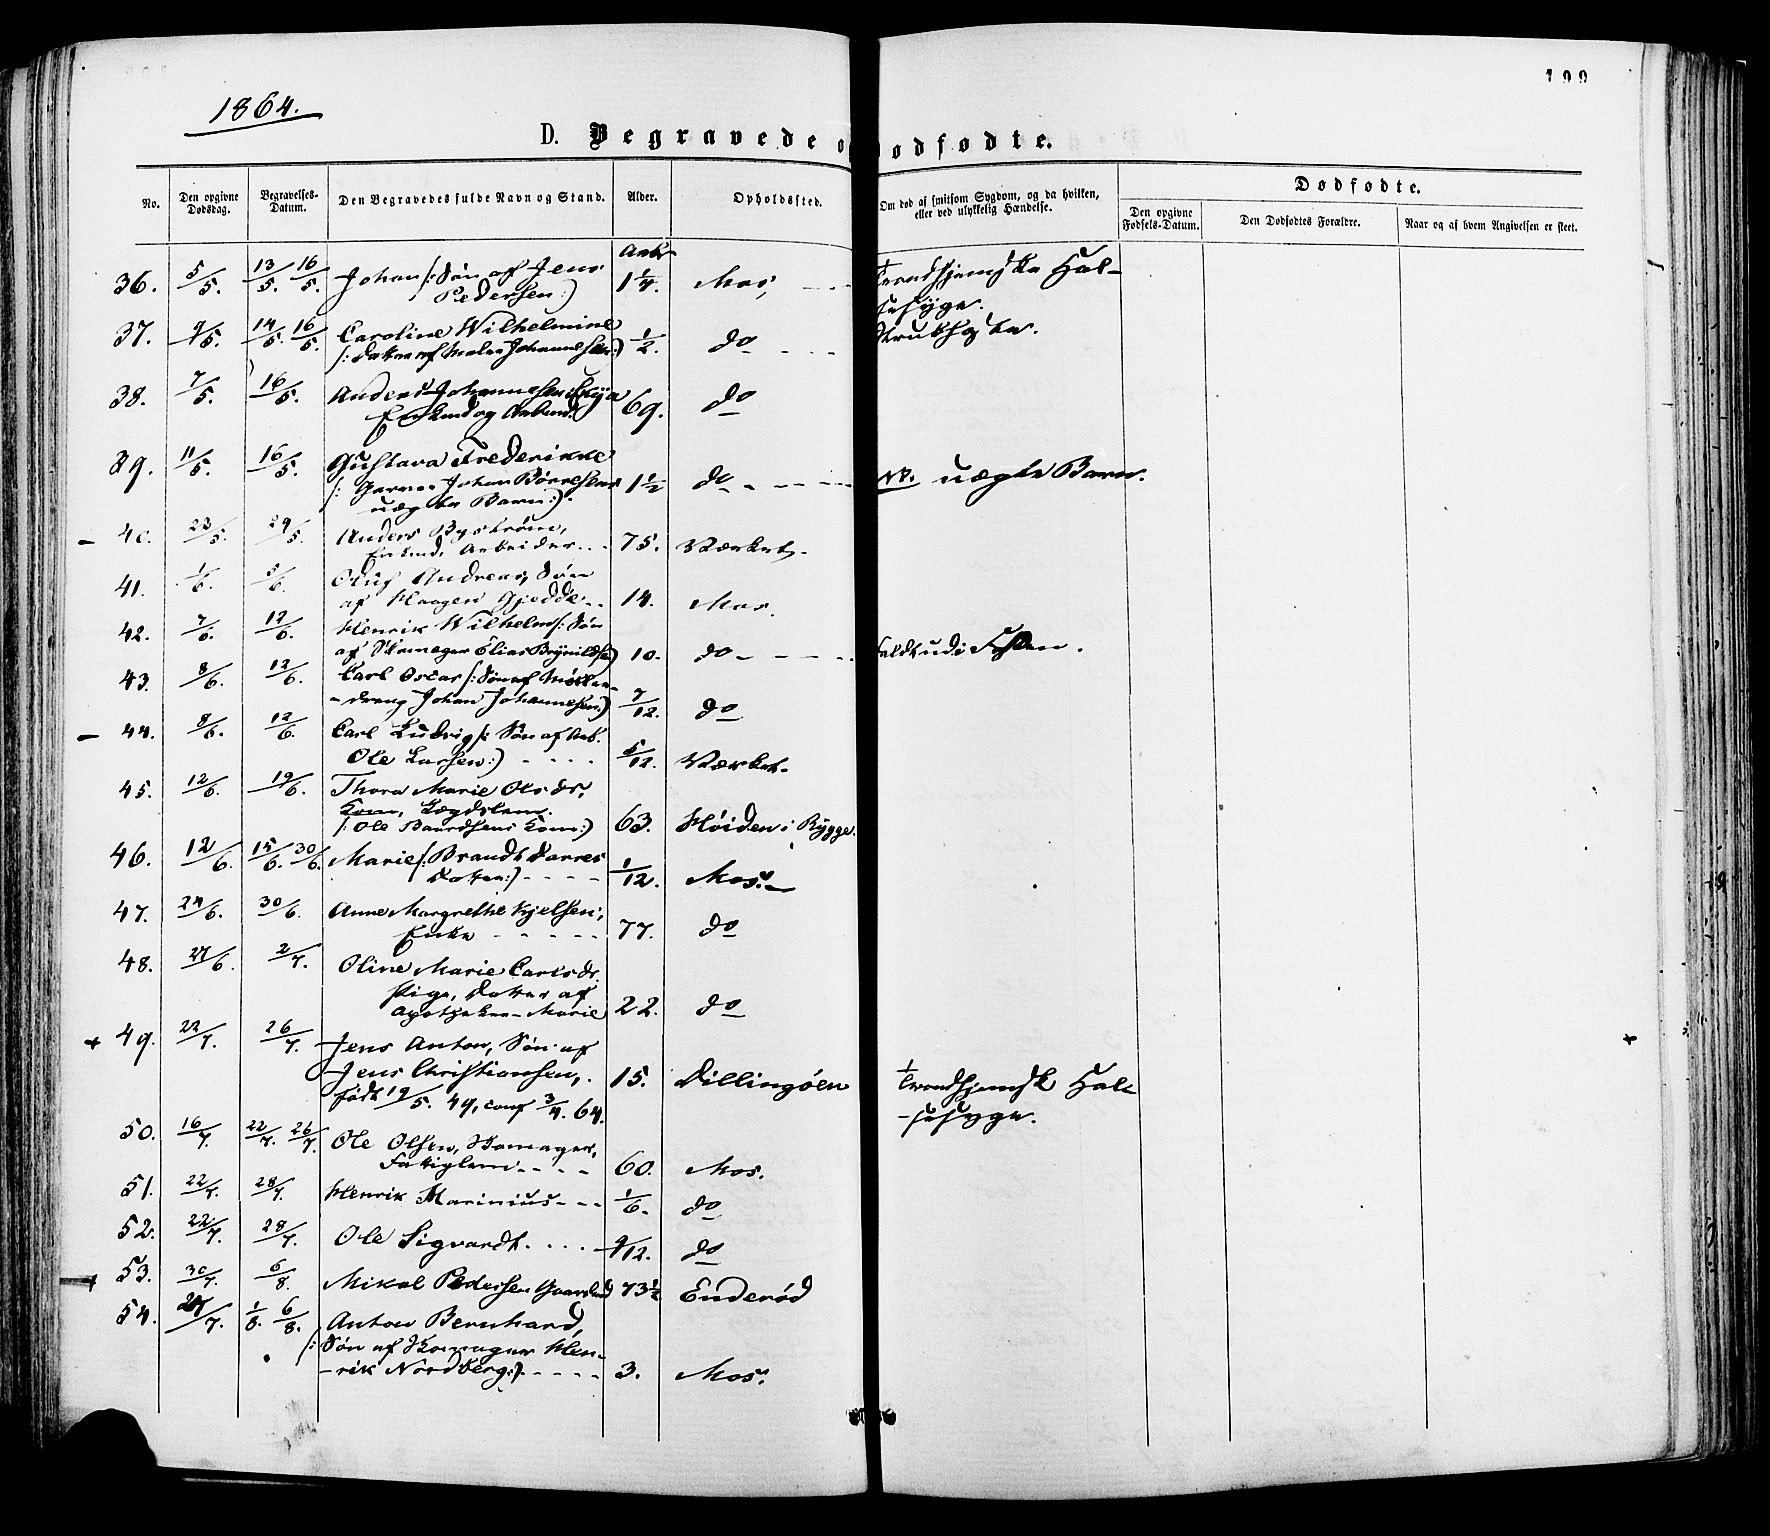 199
1864.
D. Begravede o dodfødte.
No. Den opgivne Dødsdag. Begravelses-Datum. Den Begravedes fulde Navn og Stand. Alder. Opholdssted. Om død af smitsom Sygdom, og da hvilken, eller ved ulykkelig Hændelse. Dødfødte.
Den opgivne Fødsels-Datum. Den Dødfødtes Forældre. Naar og af hvem Angivelsen er skeet.
36. 5/5. 13/5. 16/5. Johan /: Søn af Jens 1 1/4. Mos, Trondhjemske Hal-
Pedersen :) sesyge.
37. 9/5. 14/5. 16/5. Caroline Wilhelmine 1/2. do Strubhoste.
/: Datter af Maler Johannesen :)
38. 7/5. 16/5. Anders Johannesen
Enkemd og Arbmd. 69. do
39. 11/5. 16/5. Gustava Frederikke
/: Garver Johan Børresens 1 1/2 do NB. uægte Barn.
uægte Barn :).
- 40. 23/5. 29/5. Anders Bystrøm,
Enkmd, Arbeider 75. Værket.
41. 1/6. 5/6. Oluf Andreas, Søn
af Haagen Gjedde 14. Mos.
42. 7/6. 12/6. Henrik Wilhelm /: Søn
af Skomager Elias Brynildsen 10. do Faldt ud i Fossen.
43. 8/6. 12/6. Carl Oscar /: Søn af Møller-
-dreng Johan Johannesen :) 7/12. do
- 44. 8/6. 12/6. Carl Ludvig /: Søn af Arb.
Ole Larsen :) 5/12. Værket.
45. 12/6. 19/6. Thora Marie Olsdr.
Kone, Lægdslem.
/: Ole Baardsens Kone :) 63. Høiden i Rygge.
46. 12/6. 15/6. 30/6. Marie /: Brandt Darres
Datter :) 1/12. Mos.
47. 24/6. 30/6. Anne Margrethe Kjelsen,
Enke 77. do
48. 27/6. 2/7. Oline Marie Carlsdr.
Pige, Datter af
Apotheker-Marie 22. do
+ 49. 22/7. 26/7. Jens Anton, Søn af
Jens Christiansen, 15. Dillingøen Trondhjemsk Hal-
født 19/5. 49, conf 3/4. 64. -sesyge. +
50. 16/7. 22/7. 26/7. Ole Olsen, Skomager,
Fattiglem 60. Mos.
51. 22/7. 28/7. Henrik Marinius 1/6. do
52. 22/7. 28/7. Ole Sigvardt. 9/12. do
+ 53. 30/7. 6/8. Mikal Pedersen Gaardmd 73 1/2 Enderød
54. 27/7. 1/8. 6/8. Anton Bernhard,
/: Søn af Skomager Hen-
-rik Nordberg :) 3. Mos.